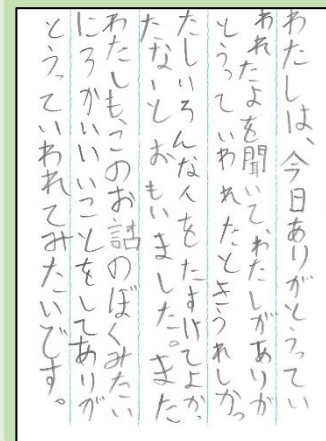 わたしは、今日ありがとうってい
われたよを聞いて、わたしがありが
とうっていわれたときうれしかっ
たしいろんな人をたすけてよかっ
たないとおもいました。また
わたしも、このお話のぼくみたい
にろかいいいことをしてありが
とうっていわれてみたいです。